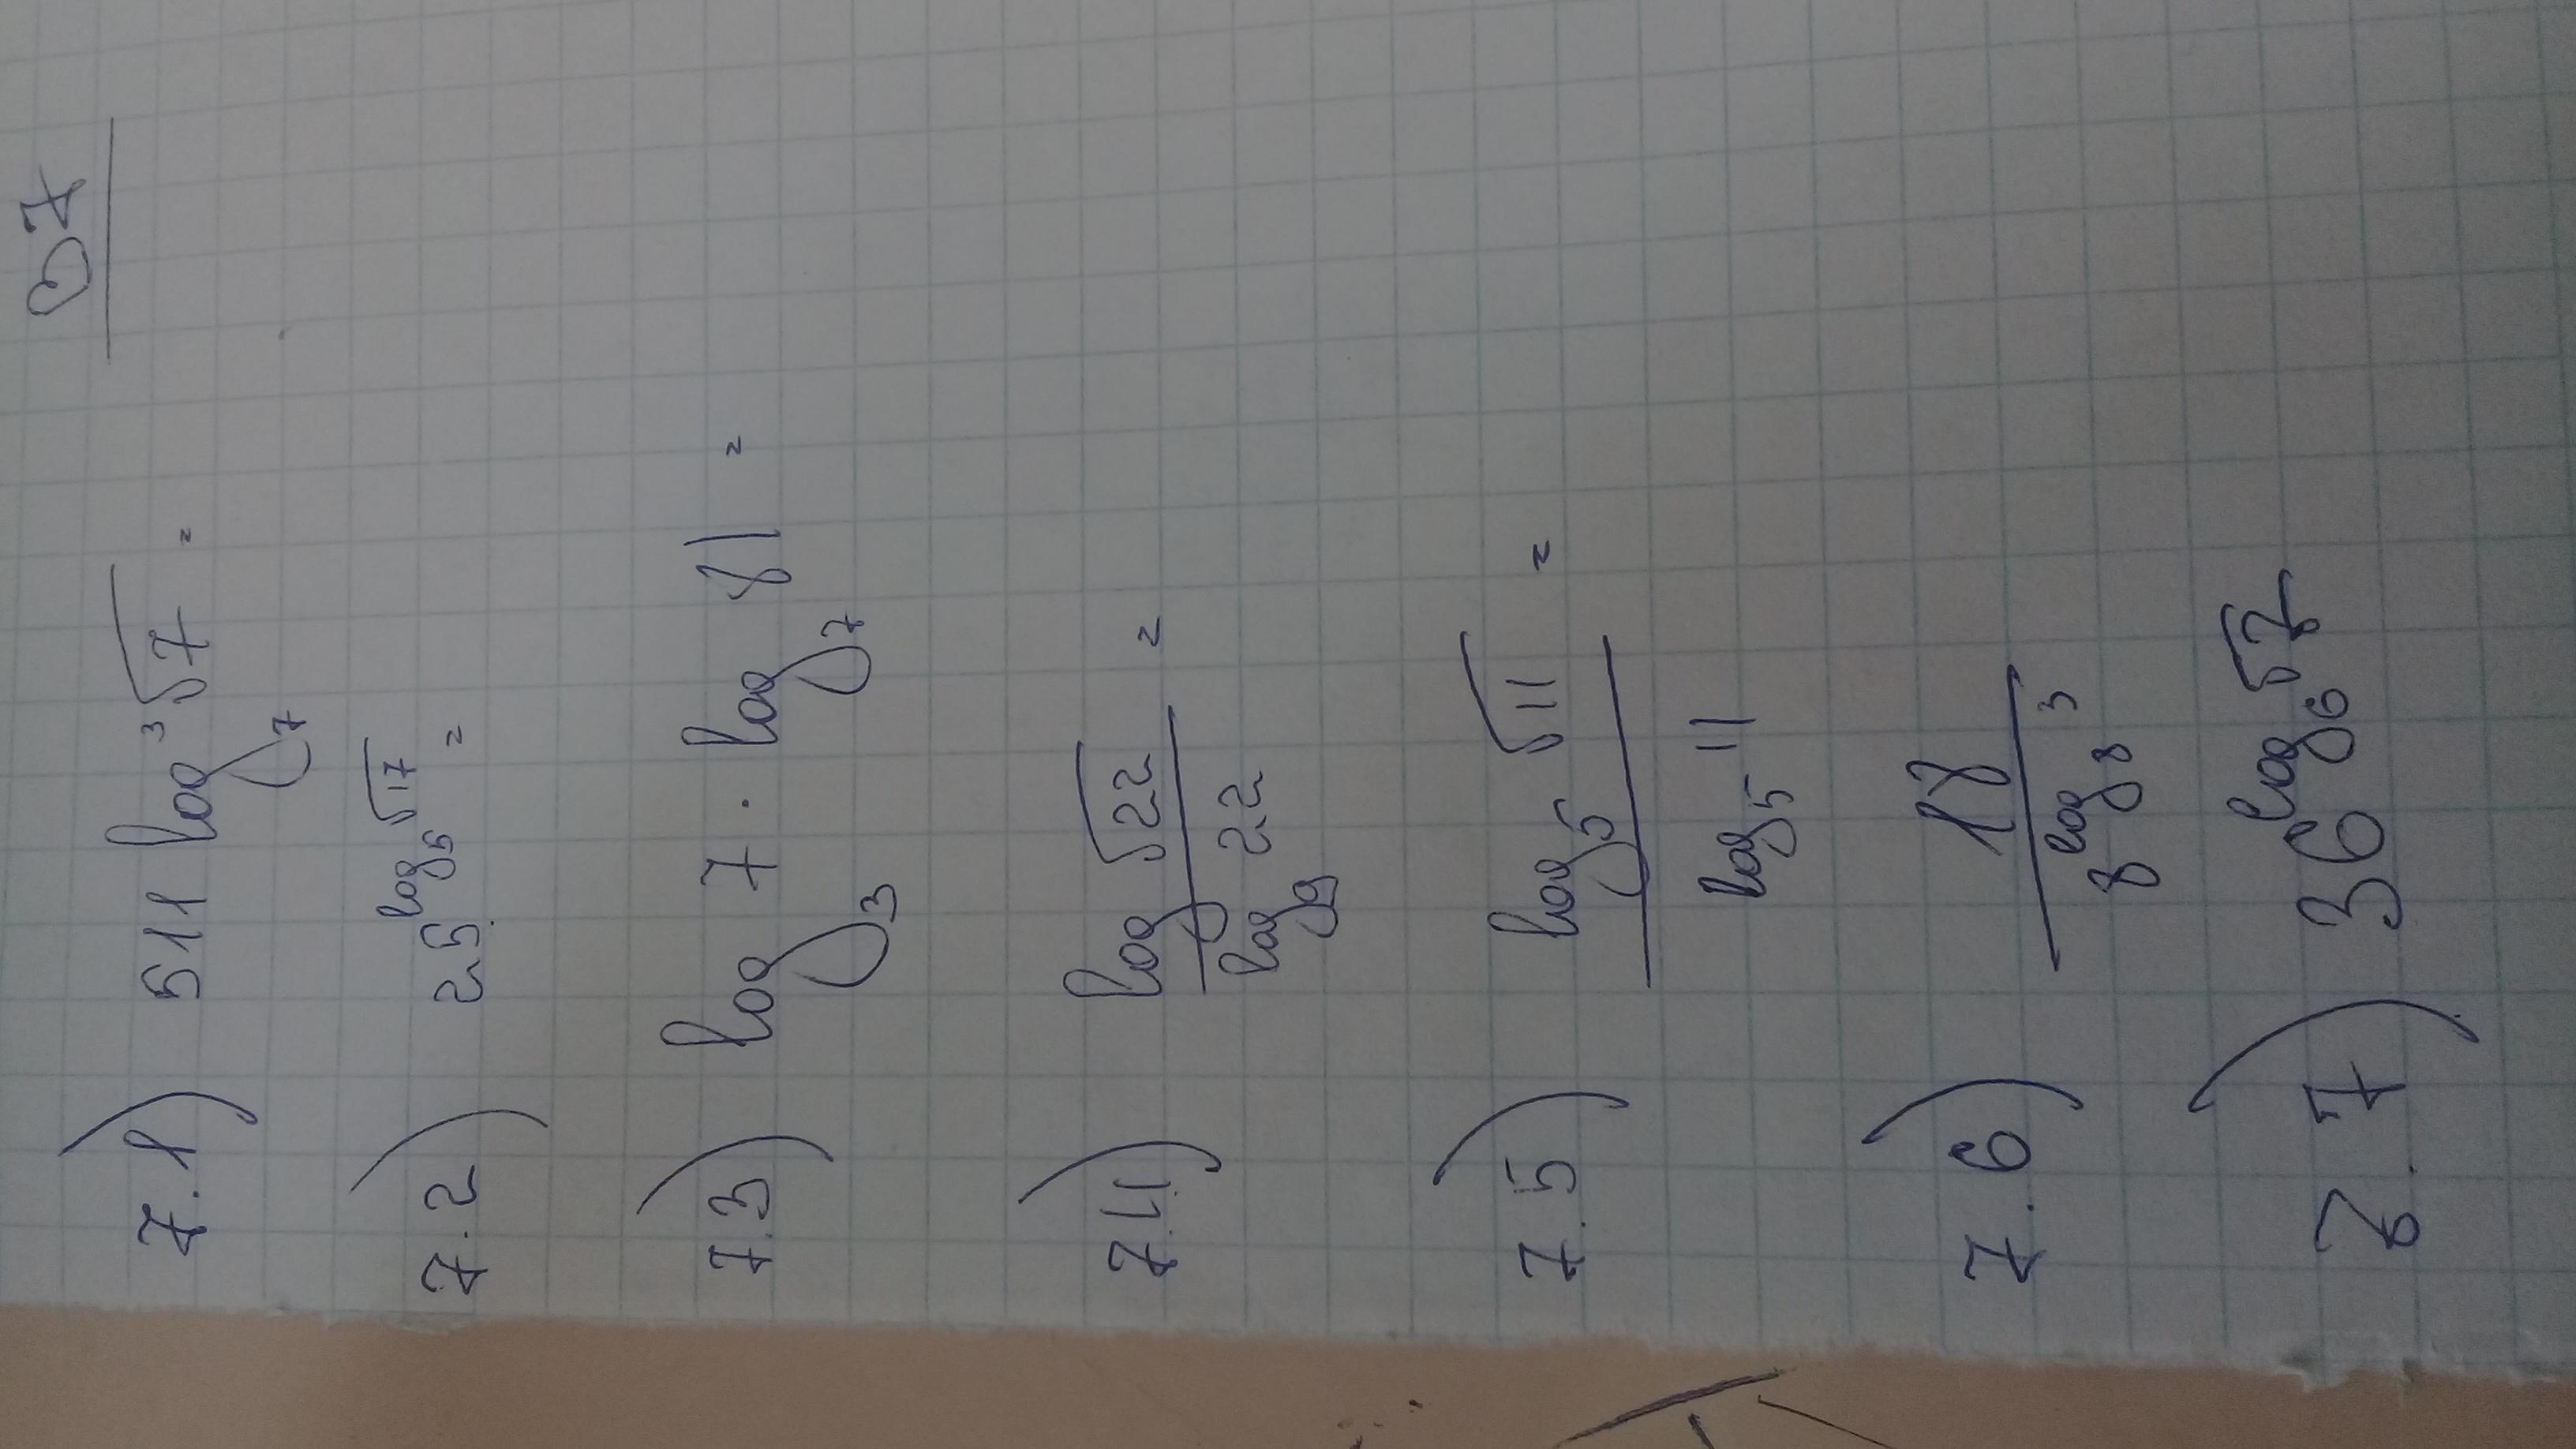 B7
7.1) 511 log₇ ³√7 =
7.2) 25^log₅√17 =
7.3) log₃ 7 · log₇ 81 =
7.4) log √22 / log₉ 22 =
7.5) log₅ √11 / log₅ 11 =
7.6) 18 / 8^log₈ 3
7.7) 36^log₆ √7